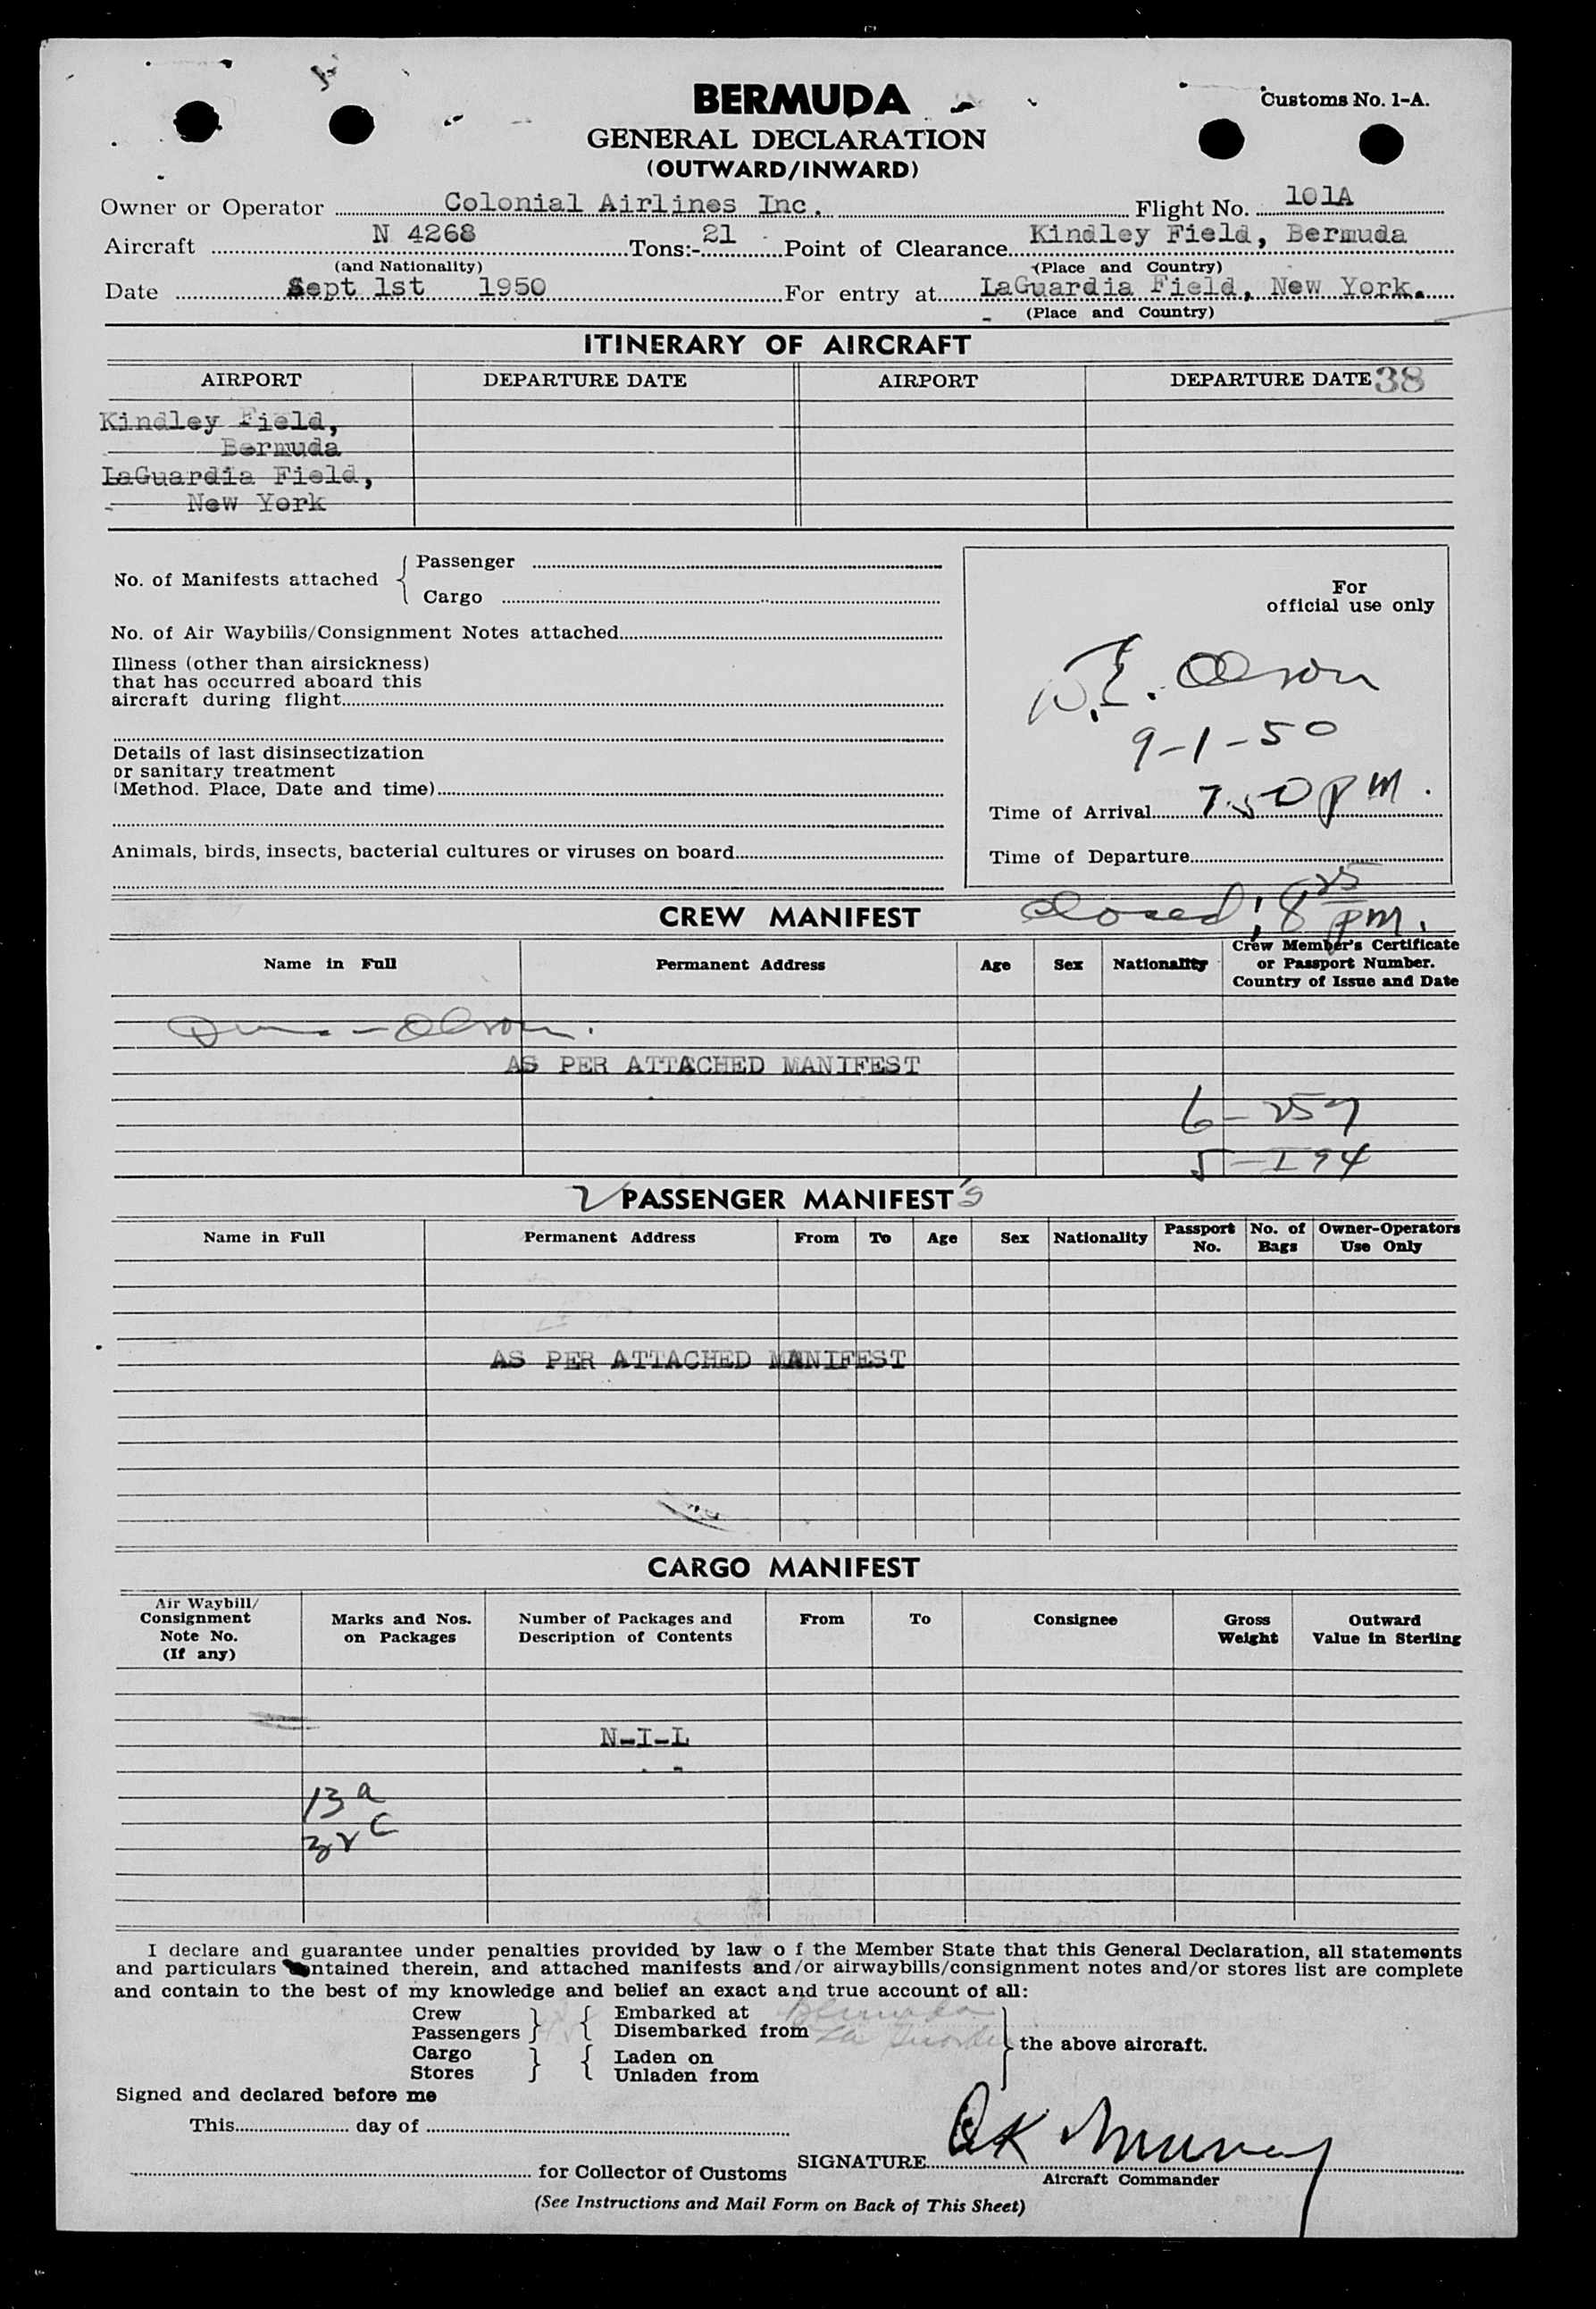 BERMUDA
Customs No. 1-A.
GENERAL DECLARATION
(OUTWARD/INWARD)
Owner or Operator Colonial Airlines Inc. Flight No. 101A
Aircraft N 4268 Tons:- 21 Point of Clearance Kindley Field, Bermuda
(and Nationality) (Place and Country)
Date Sept 1st 1950 For entry at LaGuardia Field, New York.
(Place and Country)
ITINERARY OF AIRCRAFT
AIRPORT DEPARTURE DATE AIRPORT DEPARTURE DATE 38
Kindley Field,
Bermuda
LaGuardia Field,
New York
No. of Manifests attached { Passenger
Cargo
For
official use only
No. of Air Waybills/Consignment Notes attached
Illness (other than airsickness)
that has occurred aboard this
aircraft during flight
Olson
9-1-50
Details of last disinsectization
or sanitary treatment
(Method. Place, Date and time)
Time of Arrival 7.50 PM.
Animals, birds, insects, bacterial cultures or viruses on board
Time of Departure
CREW MANIFEST
Closed; 8 25 PM.
Name in Full Permanent Address Age Sex Nationality Crew Member's Certificate
or Passport Number.
Country of Issue and Date
Olson.
AS PER ATTACHED MANIFEST
6-257
5-I94
2 PASSENGER MANIFEST's
Name in Full Permanent Address From To Age Sex Nationality Passport No. No. of Bags Owner-Operators Use Only
AS PER ATTACHED MANIFEST
CARGO MANIFEST
Air Waybill/
Consignment
Note No.
(If any)
Marks and Nos.
on Packages
Number of Packages and
Description of Contents
From To Consignee
Gross
Weight
Outward
Value in Sterling
N-I-L
13 a
32 c
I declare and guarantee under penalties provided by law o f the Member State that this General Declaration, all statements
and particulars contained therein, and attached manifests and/or airwaybills/consignment notes and/or stores list are complete
and contain to the best of my knowledge and belief an exact and true account of all:
Crew } { Embarked at Bermuda
Passengers } { Disembarked from La Guardia
} the above aircraft.
Cargo } { Laden on
Stores } { Unladen from
Signed and declared before me
This day of
for Collector of Customs SIGNATURE Murray
Aircraft Commander
(See Instructions and Mail Form on Back of This Sheet)